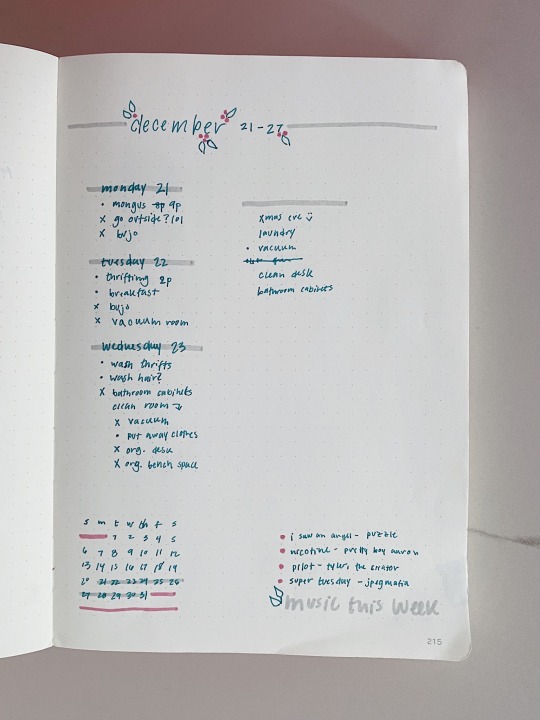 december 21-27
monday 21
• mongus 8p 9p
x go outside? lol
x bujo
tuesday 22
• thrifting 2p
• breakfast
x bujo
x vacuum room
wednesday 23
• wash thrifts
• wash hair?
x bathroom cabinets
clean room
x vacuum
• put away clothes
x org. desk
x org. bench space
xmas eve
laundry
• vacuum
clean desk
bathroom cabinets
s m t w th f s
1 2 3 4 5
6 7 8 9 10 11 12
13 14 15 16 17 18 19
20 21 22 23 24 25 26
27 28 29 30 31
• i saw an angel - puzzle
• nicotine - pretty boy aaron
• pilot - tyler, the creator
• super tuesday - jpegmafia
music this week
215